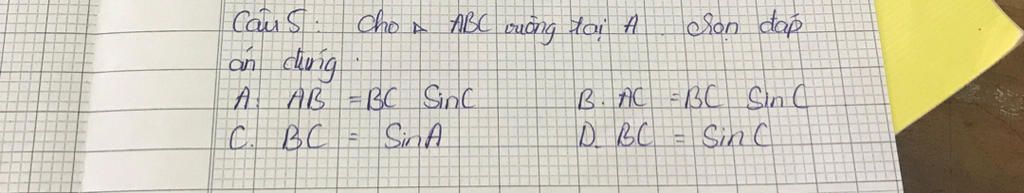 Câu 5: Cho △ ABC vuông tại A. Chọn đáp
án đúng.
A. AB = BC SinC B. AC = BC SinC
C. BC = SinA D. BC = SinC